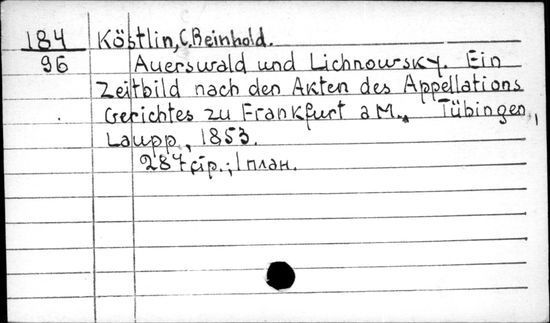 184 Köstlin, C. Reinhold.
96 Auerswald und Lichnowsky. Ein
Zeitbild nach den Akten des Appellations
Gerichtes zu Frankfurt a M., Tübingen,
Laupp, 1853.
287 стр.; 1 план.